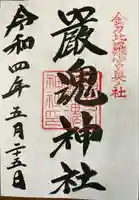 金刀比羅宮奥社
嚴魂神社
令和四年五月二十五日